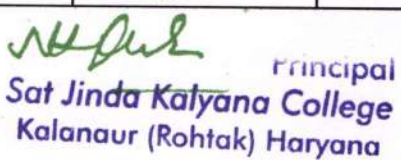 Principal
Sat Jinda Kalyana College
Kalanaur (Rohtak) Haryana